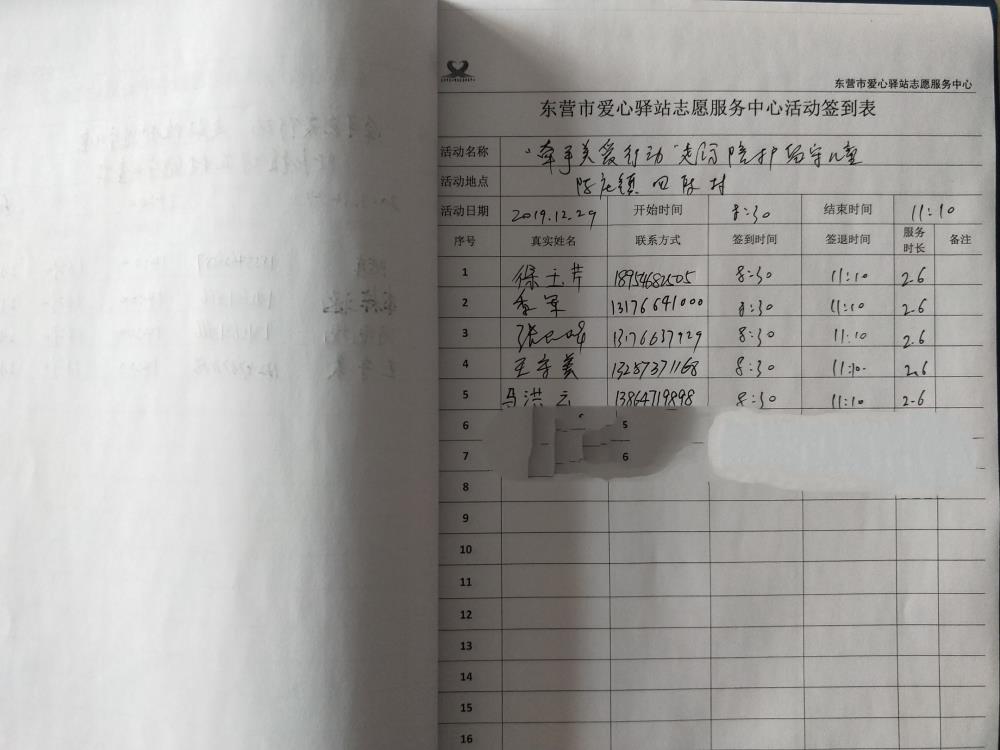 东营市爱心驿站志愿服务中心
东营市爱心驿站志愿服务中心活动签到表
活动名称 "牵手关爱行动"走访陪护留守儿童
活动地点 陈庄镇 四陈村
活动日期 2019.12.29 开始时间 8:30 结束时间 11:10
序号 真实姓名 联系方式 签到时间 签退时间 服务时长 备注
1 徐玉芹 18954682505 8:30 11:10 2.6
2 李军 13176641000 8:30 11:10 2.6
3 13176637929 8:30 11:10 2.6
4 王守美 13287371168 8:30 11:10 2.6
5 马洪云 13864719898 8:30 11:10 2.6
6 5
7 6
8
9
10
11
12
13
14
15
16